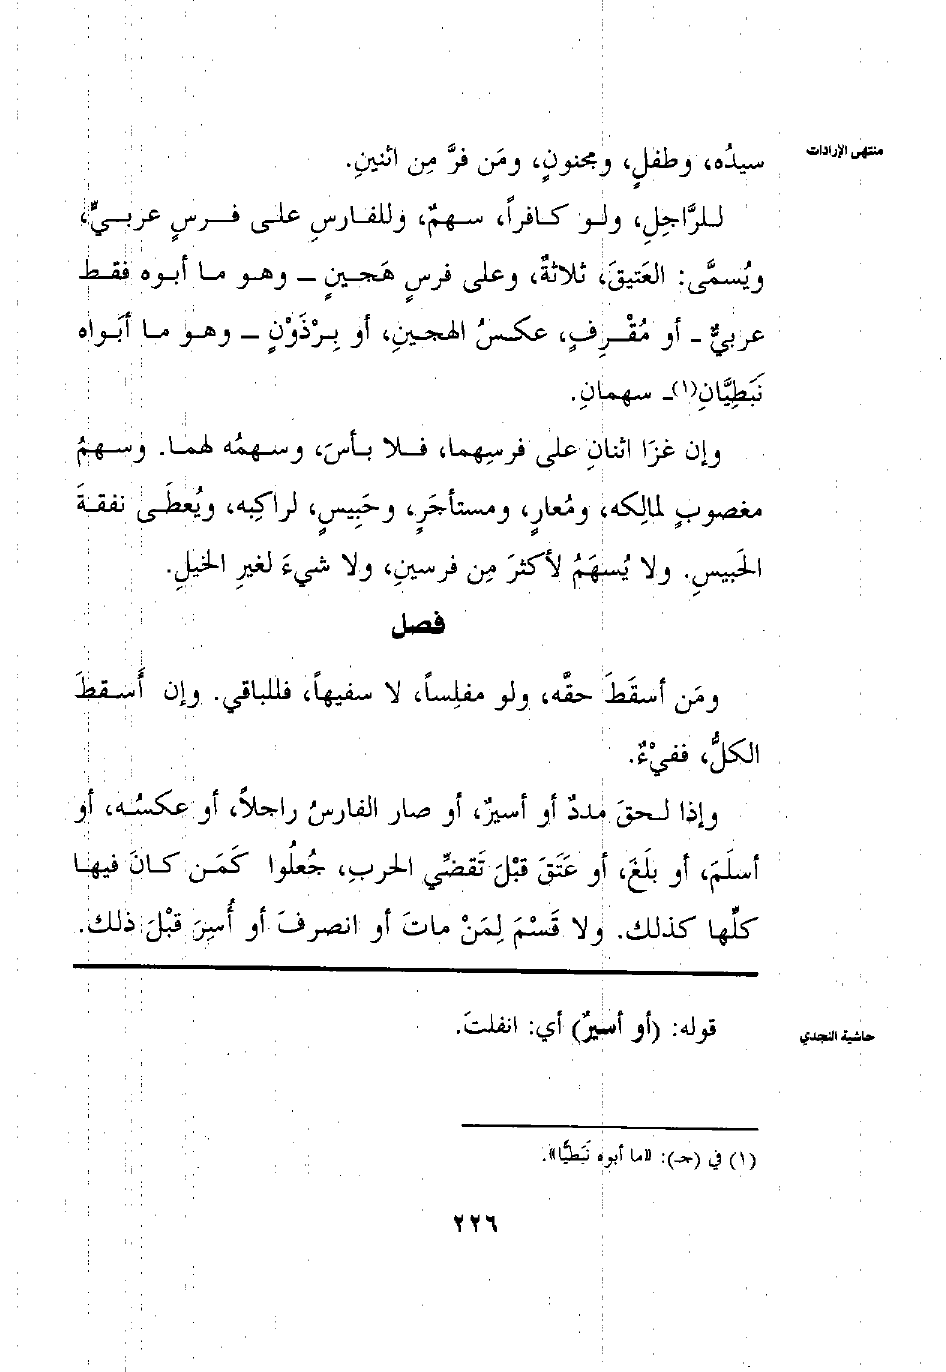 منتهى الإرادات
سيدُه، وطفلٍ، ومجنونٍ، ومَن فرَّ مِن اثنينِ.
للرَّاجِلِ، ولو كافراً، سهمٌ، وللفارسِ على فرسٍ عربيٍّ،
ويُسمَّى: العَتيقَ، ثلاثةٌ، وعلى فرسٍ هَجينٍ ــ وهو ما أبوه فقط
عربيٌّ ــ أو مُقْرِفٍ، عكسُ الهجينِ، أو بِرْذَوْنٍ ــ وهو ما أبَواه
نَبَطِيَّانِ(١)ــ سهمانِ.
وإن غزَا اثنانِ على فرسِهما، فلا بأسَ، وسهمُه لهما. وسهمُ
مغصوبٍ لمالِكه، ومُعارٍ، ومستأجَرٍ، وحَبِيسٍ، لراكِبه، ويُعطَى نفقةَ
الحَبيسِ. ولا يُسهَمُ لأكثرَ مِن فرسينِ، ولا شيءَ لغيرِ الخيلِ.
فصل
ومَن أسقَطَ حقَّه، ولو مفلِساً، لا سفيهاً، فللباقي. وإن أَسقطَ
الكلُّ، ففيْءٌ.
وإذا لحقَ مددٌ أو أسيرٌ، أو صار الفارسُ راجلاً، أو عكسُه، أو
أسلَمَ، أو بلَغَ، أو عَتَقَ قبْلَ تَقضِّي الحربِ، جُعلُوا كَمَن كانَ فيها
كلِّها كذلك. ولا قَسْمَ لِمَنْ ماتَ أو انصرفَ أو أُسِرَ قبْلَ ذلك.
حاشية النجدي
قوله: (أو أسيرٌ) أي: انفلتَ.
(١) في (جـ): «ما أبوه نَبَطيًّا».
٢٢٦